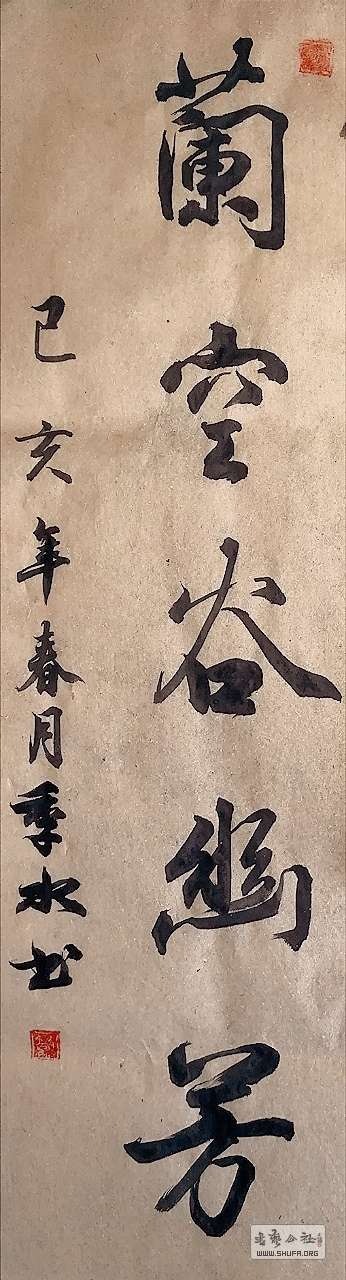 蘭空谷幽芳
己亥年春月季水书
WWW.SHUFA.ORG